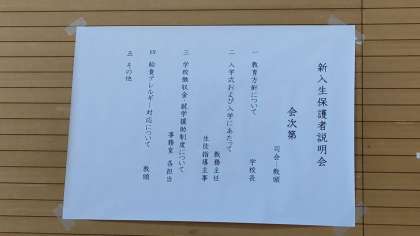 新入生保護者説明会
会次第
司会―教頭
一 教育方針について
学校長
二 入学式および入学にあたって
教務主任
生徒指導主事
三 学校徴収金・就学援助制度について
事務室 各担当
四 給食アレルギー対応について
教頭
五 その他